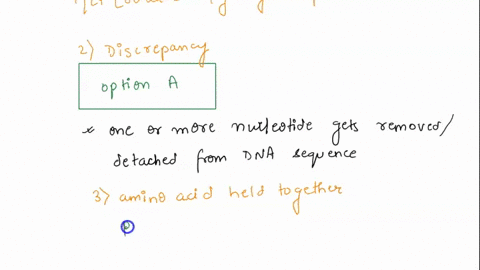 2) Discrepancy
option A
* one or more nucleotide gets removed/
detached from DNA sequence
3) amino acid held together